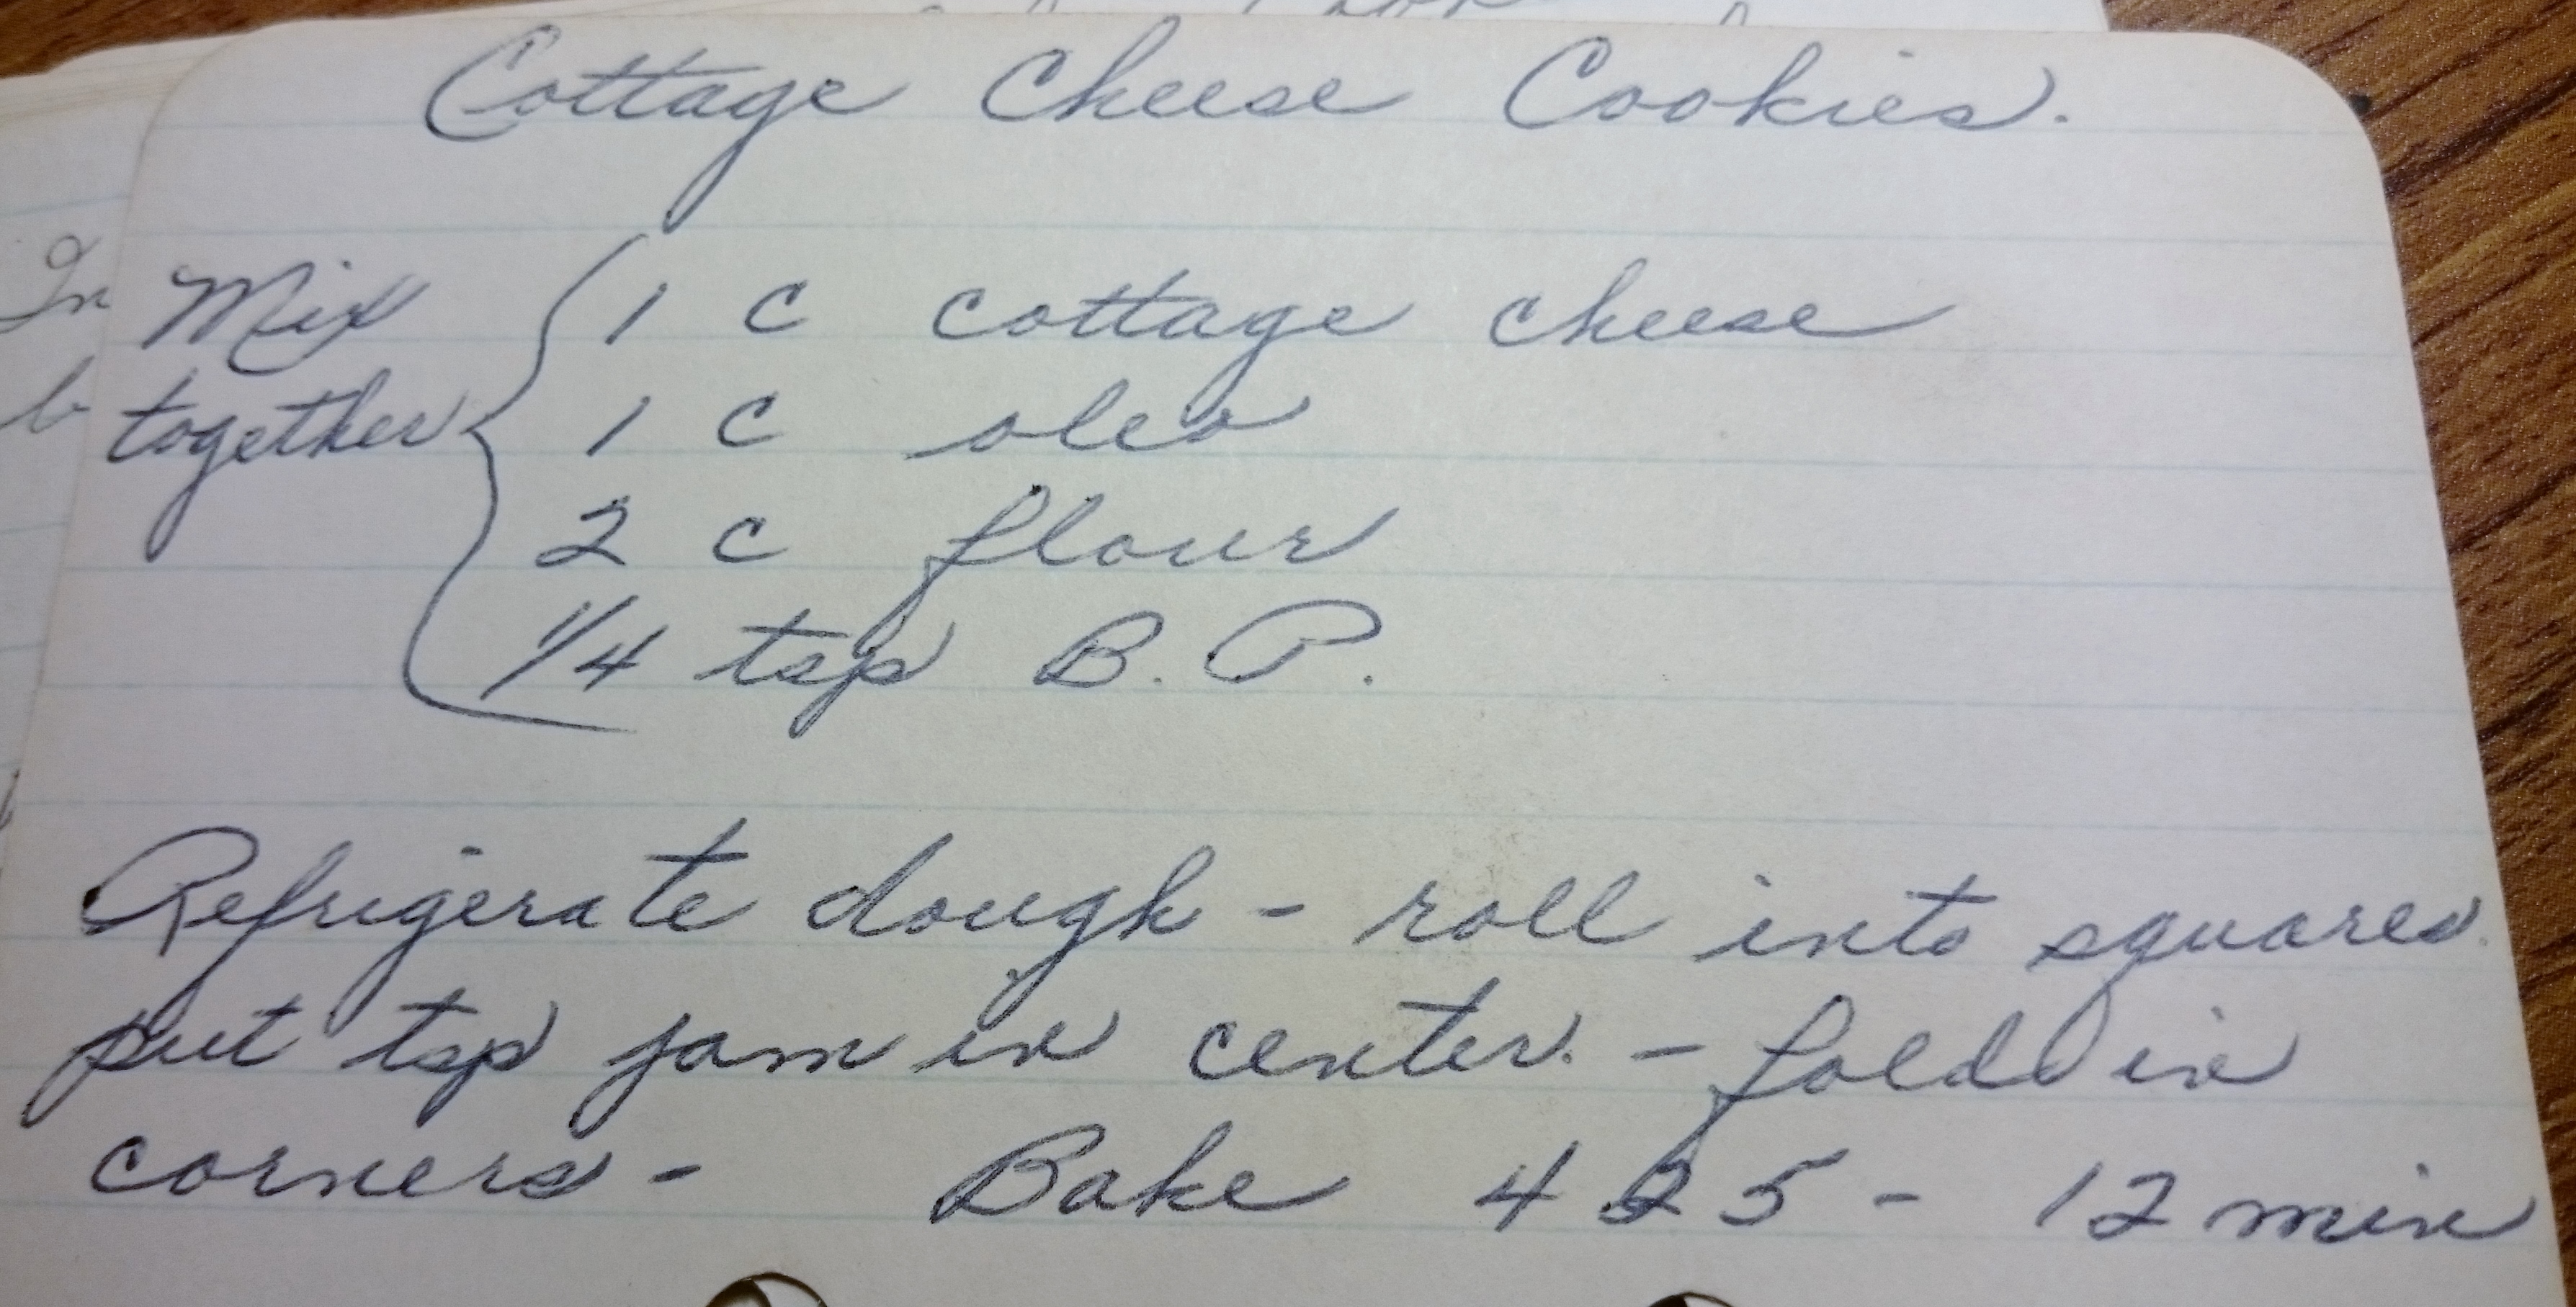 Cottage Cheese Cookies.
Mix together { 1 c cottage cheese
1 c oleo
2 c flour
1/4 tsp B. P.
Refrigerate dough - roll into squares.
put tsp jam in center. - fold in
corners - Bake 425 - 12 min
In
b